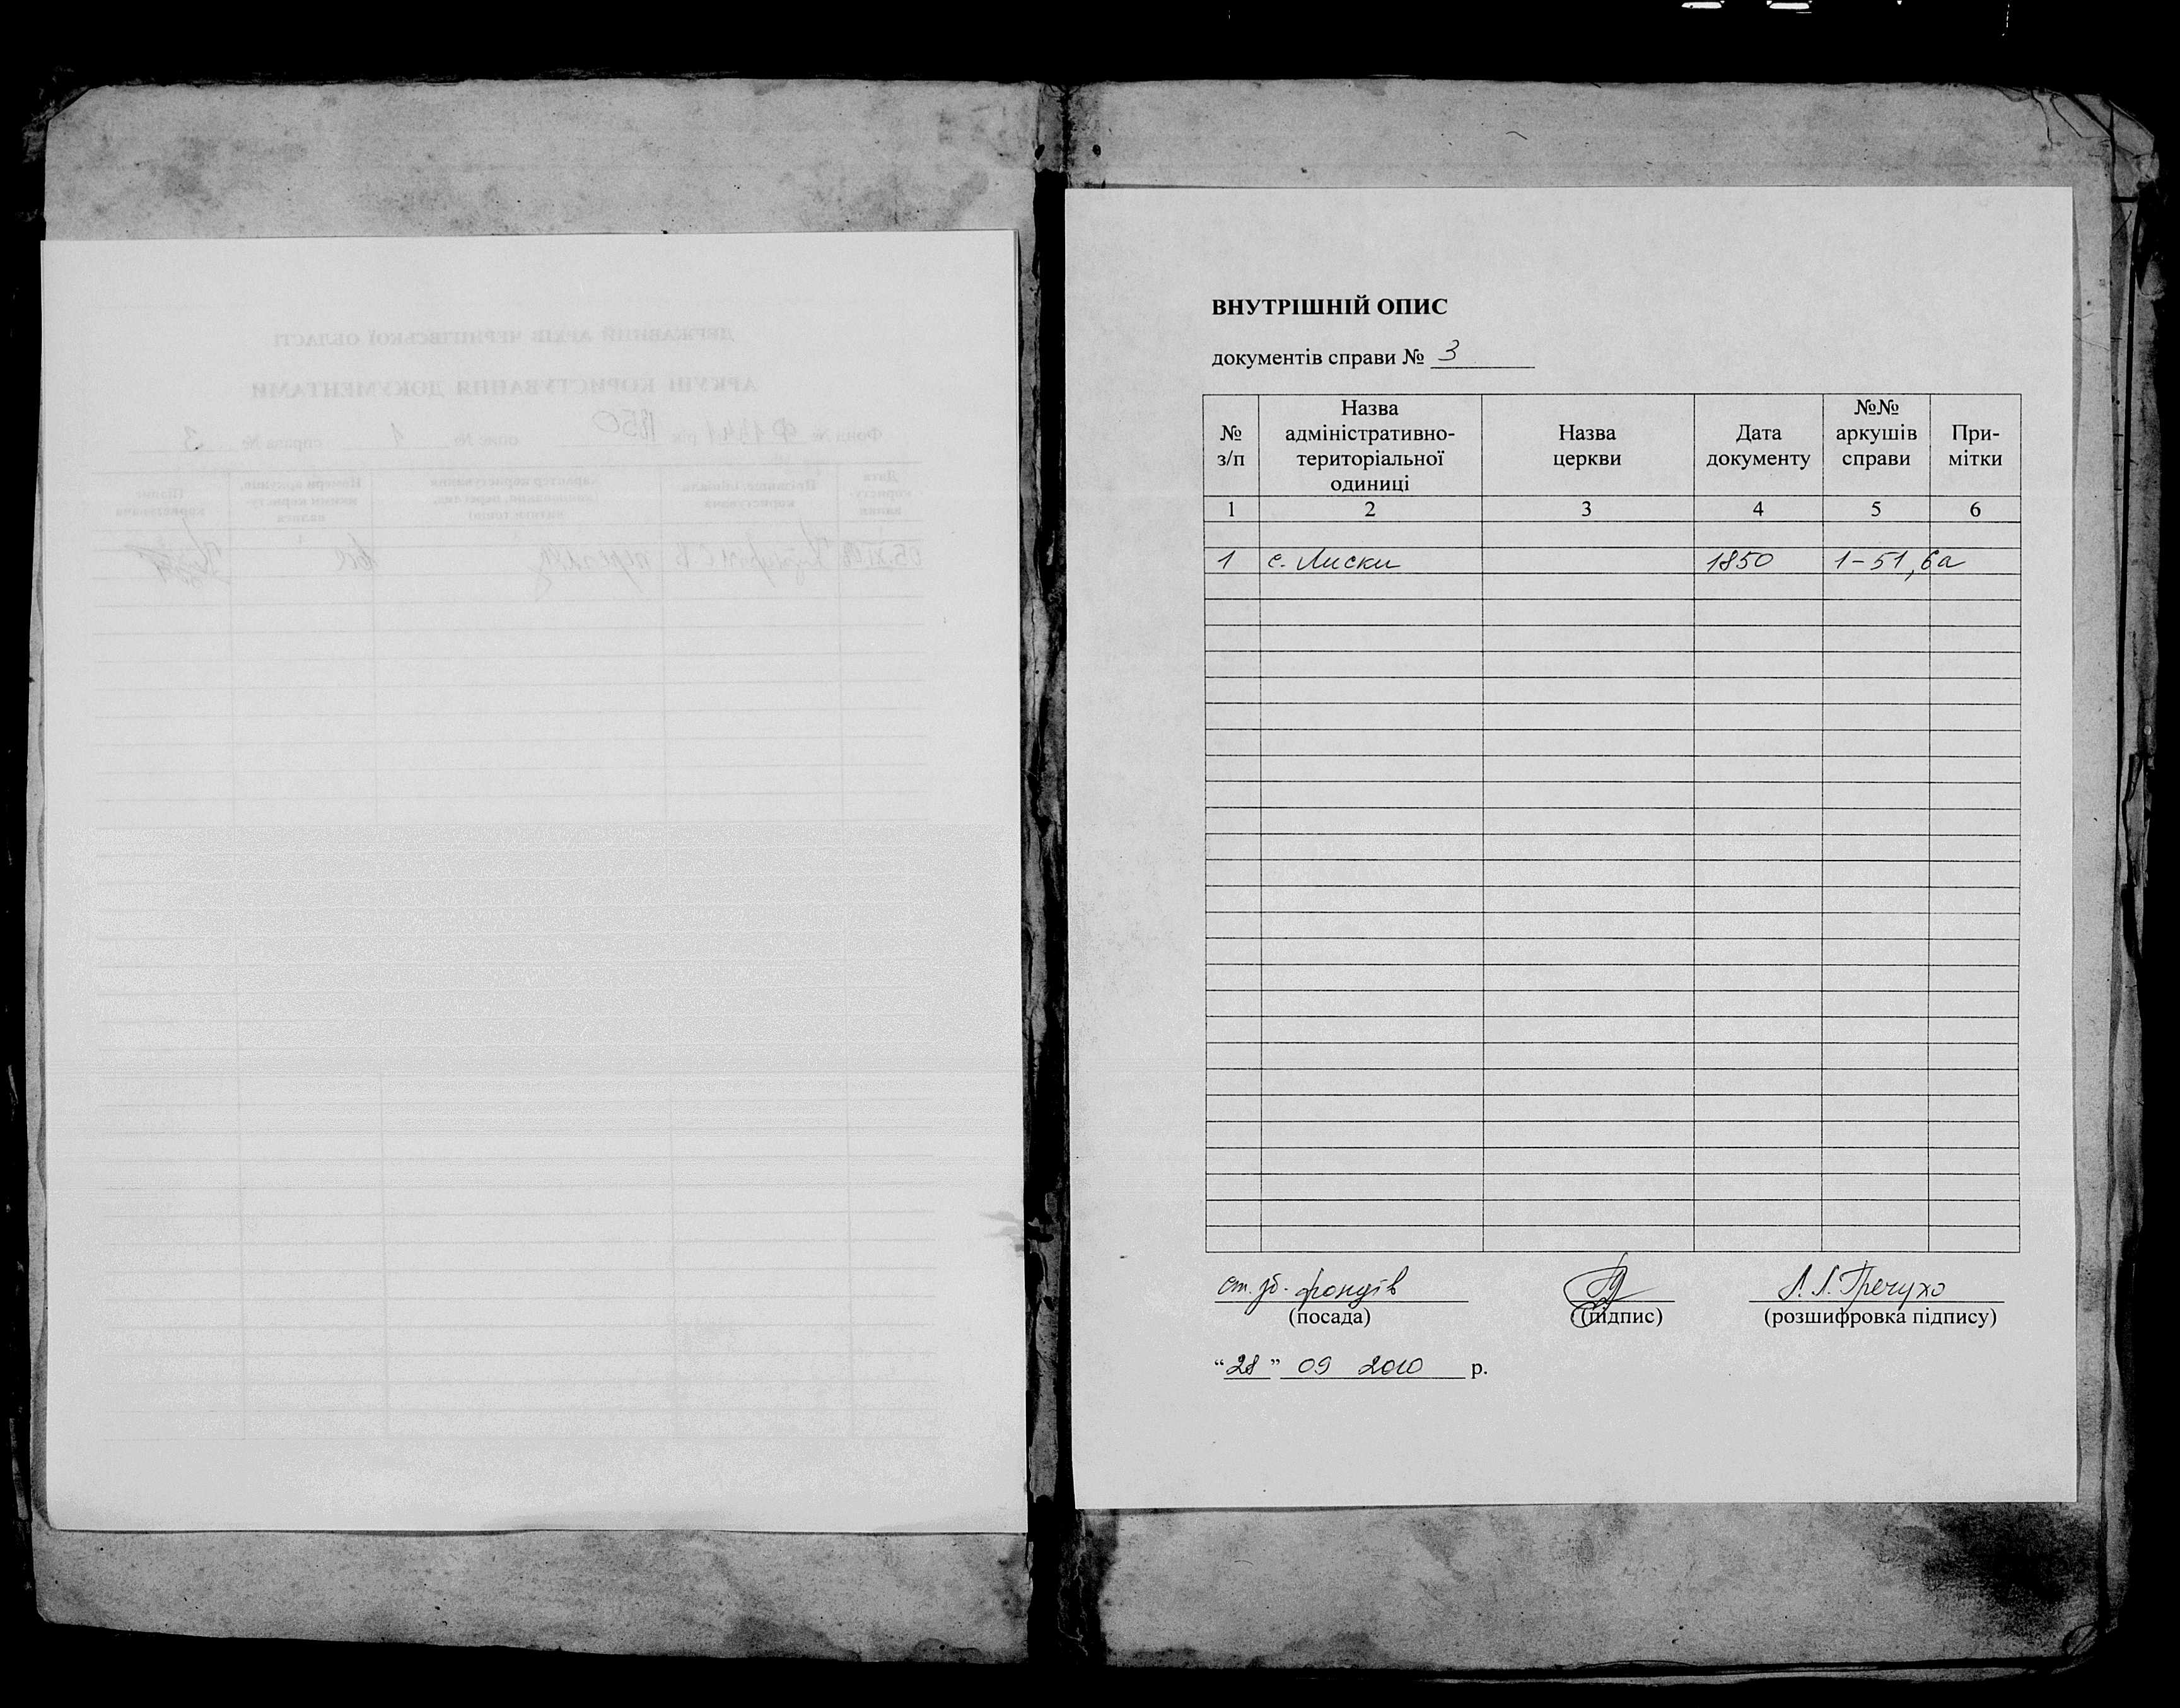 ДЕРЖАВНИЙ АРХІВ ЧЕРНІГІВСЬКОЇ ОБЛАСТІ
АРКУШ КОРИСТУВАННЯ ДОКУМЕНТАМИ
Фонд № Ф 1341 1850 опис № 1 справа № 3
Дата користування
Прізвище, ініціали користувача
Характер користування
Номери аркушів,
Підпис користувача
ВНУТРІШНІЙ ОПИС
документів справи № 3
№ з/п
Назва адміністративно-територіальної одиниці
Назва церкви
Дата документу
№№ аркушів справи
При-мітки
1 2 3 4 5 6
1 с. Лиски 1850 1-51, 6а
ст. зб. фондів Л. Л. Гречухо
(посада) (підпис) (розшифровка підпису)
“28” 09 2010 р.